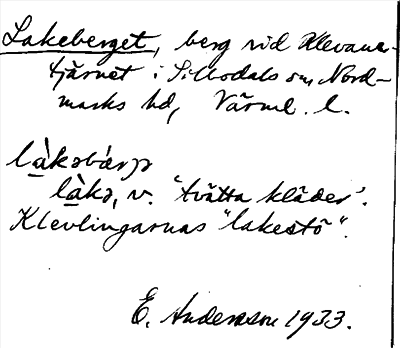 Lakeberget, berg vid Klevane-
tjärnet i Sillbodals sn, Nord-
marks hd, Värml. l.
là̱kəbær)ə
là̱kə, v. 'tvätta kläder'.
Klevlingarnas "lakestö".
E. Andersson 1933.